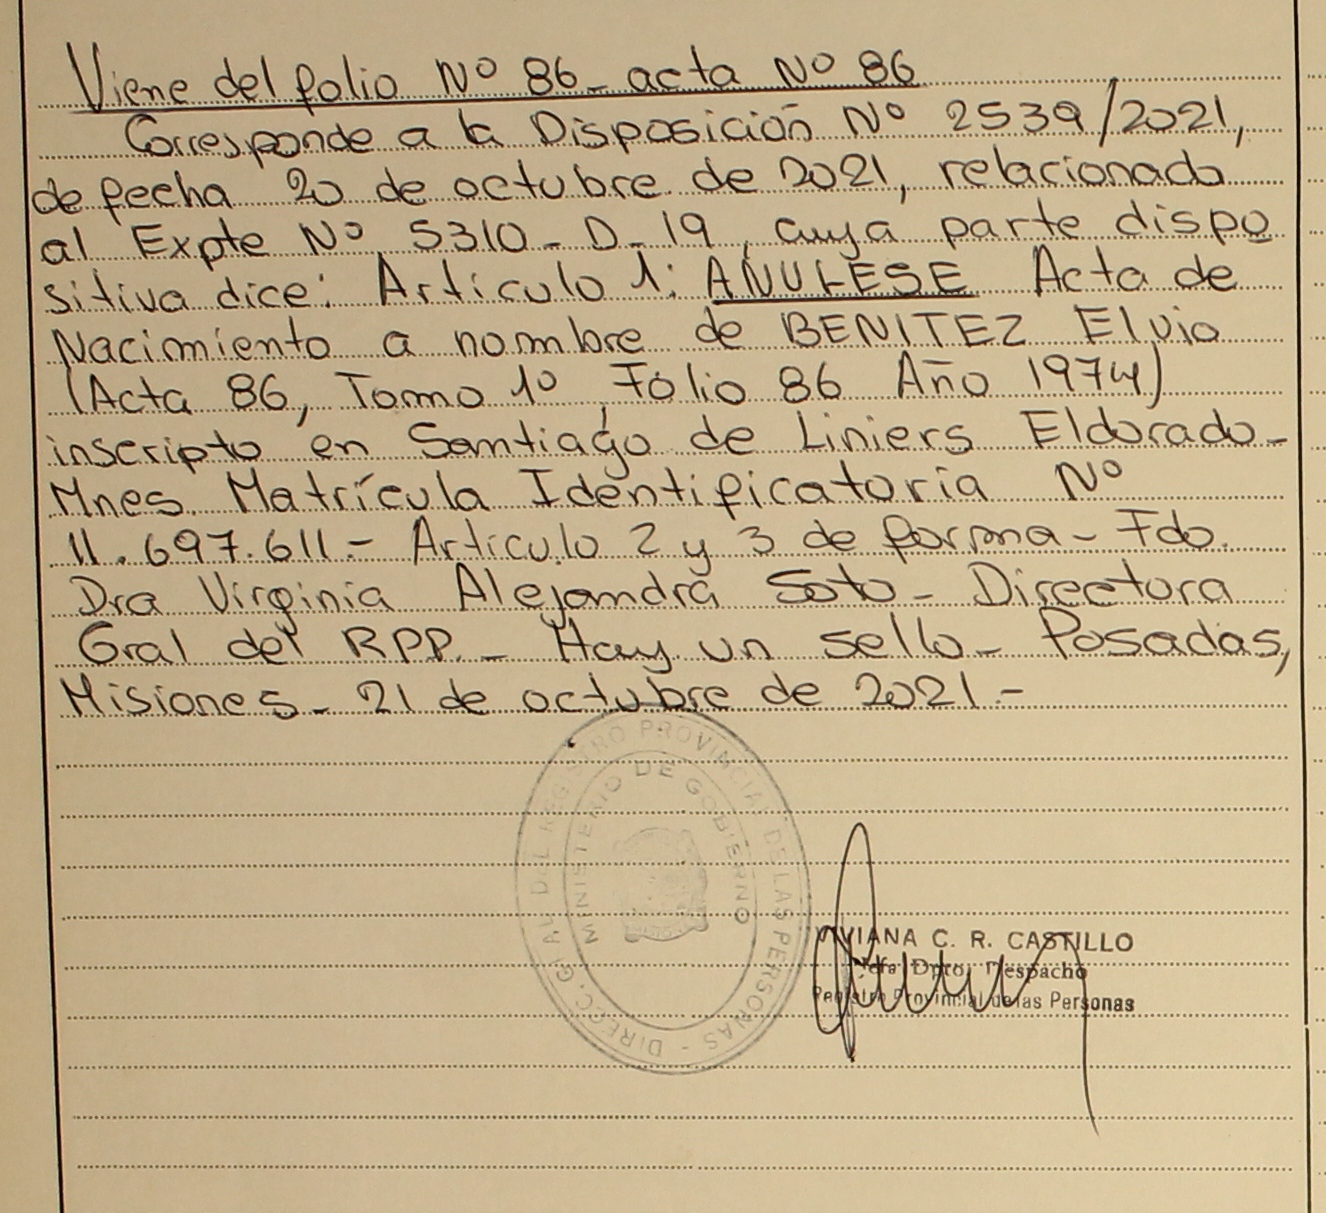 Viene del folio Nº 86_ acta Nº 86
Corresponde a la Disposición Nº 2539/2021,
de fecha 20 de octubre de 2021, relacionado
al Expte Nº 5310_D_19, cuya parte dispo
sitiva dice: Artículo 1: ANULESE Acta de
Nacimiento a nombre de BENITEZ Elvio
(Acta 86, Tomo 1º, Folio 86 Año 1974)
inscripto en Santiago de Liniers Eldorado_
Mnes. Matrícula Identificatoria Nº
11.697.611.- Artículo 2 y 3 de forma_ Fdo.
Dra Virginia Alejandra Soto_ Directora
Gral del RPP._ Hay un sello_ Posadas,
Misiones_ 21 de octubre de 2021.-
DIRECC. GRAL DEL REGISTRO PROVINCIAL DE LAS PERSONAS -
MINISTERIO DE GOBIERNO
VIVIANA C. R. CASTILLO
Jefa Dpto. Despacho
Registro Provincial de las Personas